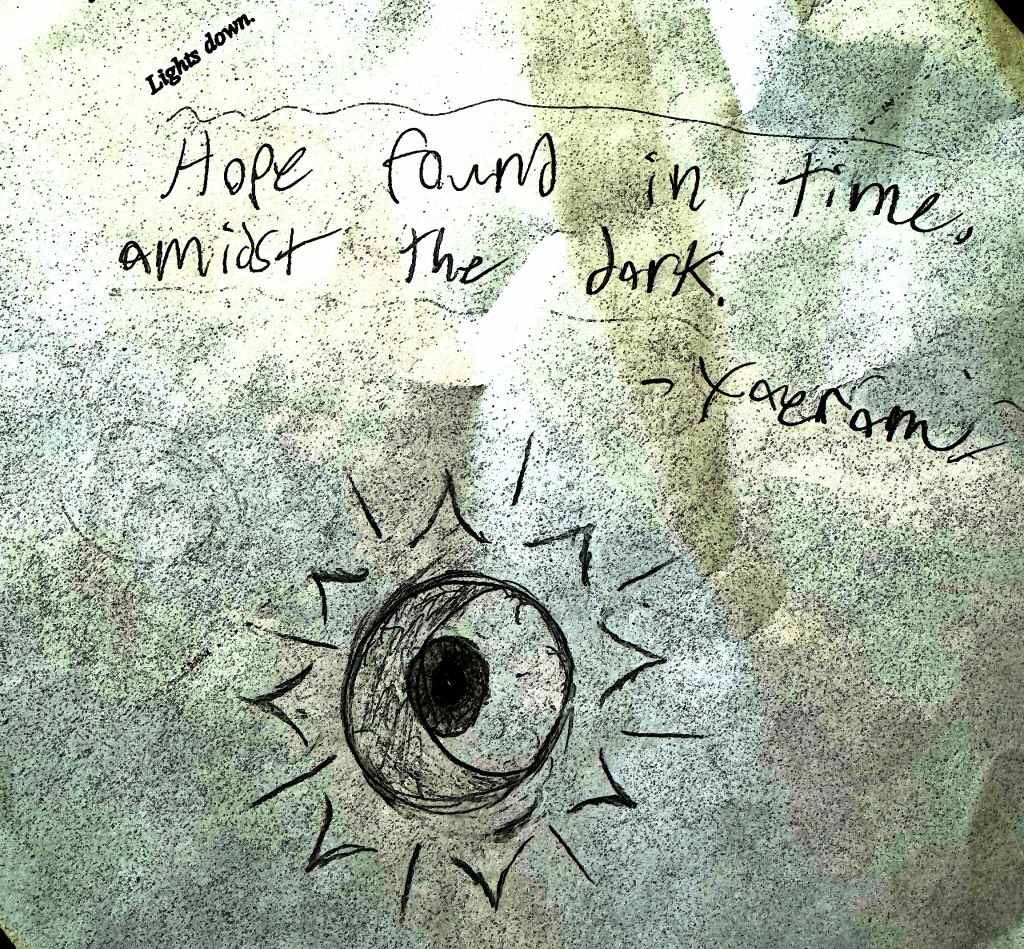 Lights down.
Hope found in time,
amidst the dark.
- Yaeram